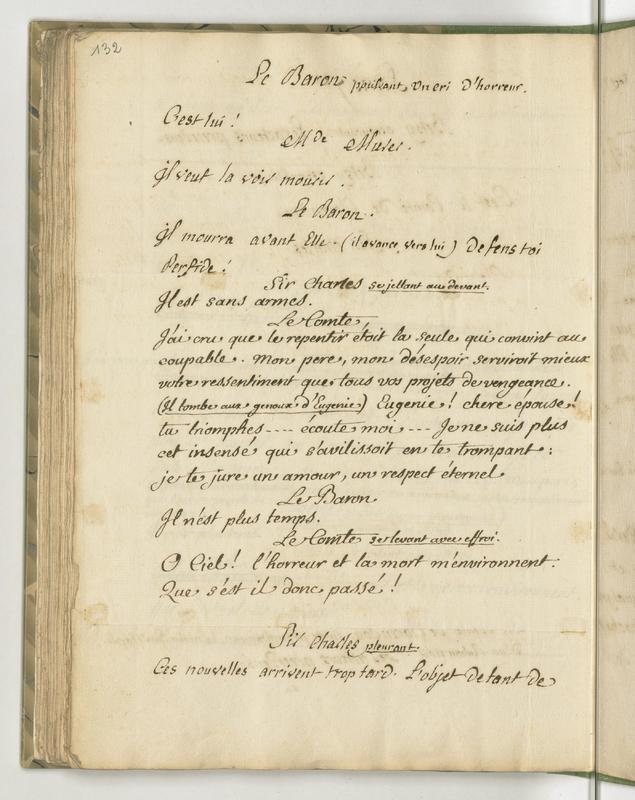 132
Le Baron poussant un cri d'horreur.
C'est lui !
Mde Murer.
Il veut la voir mourir.
Le Baron.
Il mourra avant Elle. (il avance vers lui) Defens toi
Perfide !
Sir Charles se jettant au devant.
Il est sans armes.
Le Comte,
J'ai cru que le repentir étoit la seule qui convint au
coupable. Mon pere, mon désespoir serviroit mieux
votre ressentiment que tous vos projets de vengeance.
(Il tombe aux genoux d'Eugenie) Eugenie ! chere épouse !
tu triomphes ---- écoute moi --- Je ne suis plus
cet insensé qui s'avilissoit en te trompant :
je te jure un amour, un respect éternel
Le Baron
Il n'est plus temps.
Le Comte se levant avec effroi.
O Ciel ! l'horreur et la mort m'environnent.
Que s'est il donc passé !
Sir Charles pleurant.
Ces nouvelles arrivent trop tard. L'objet de tant de